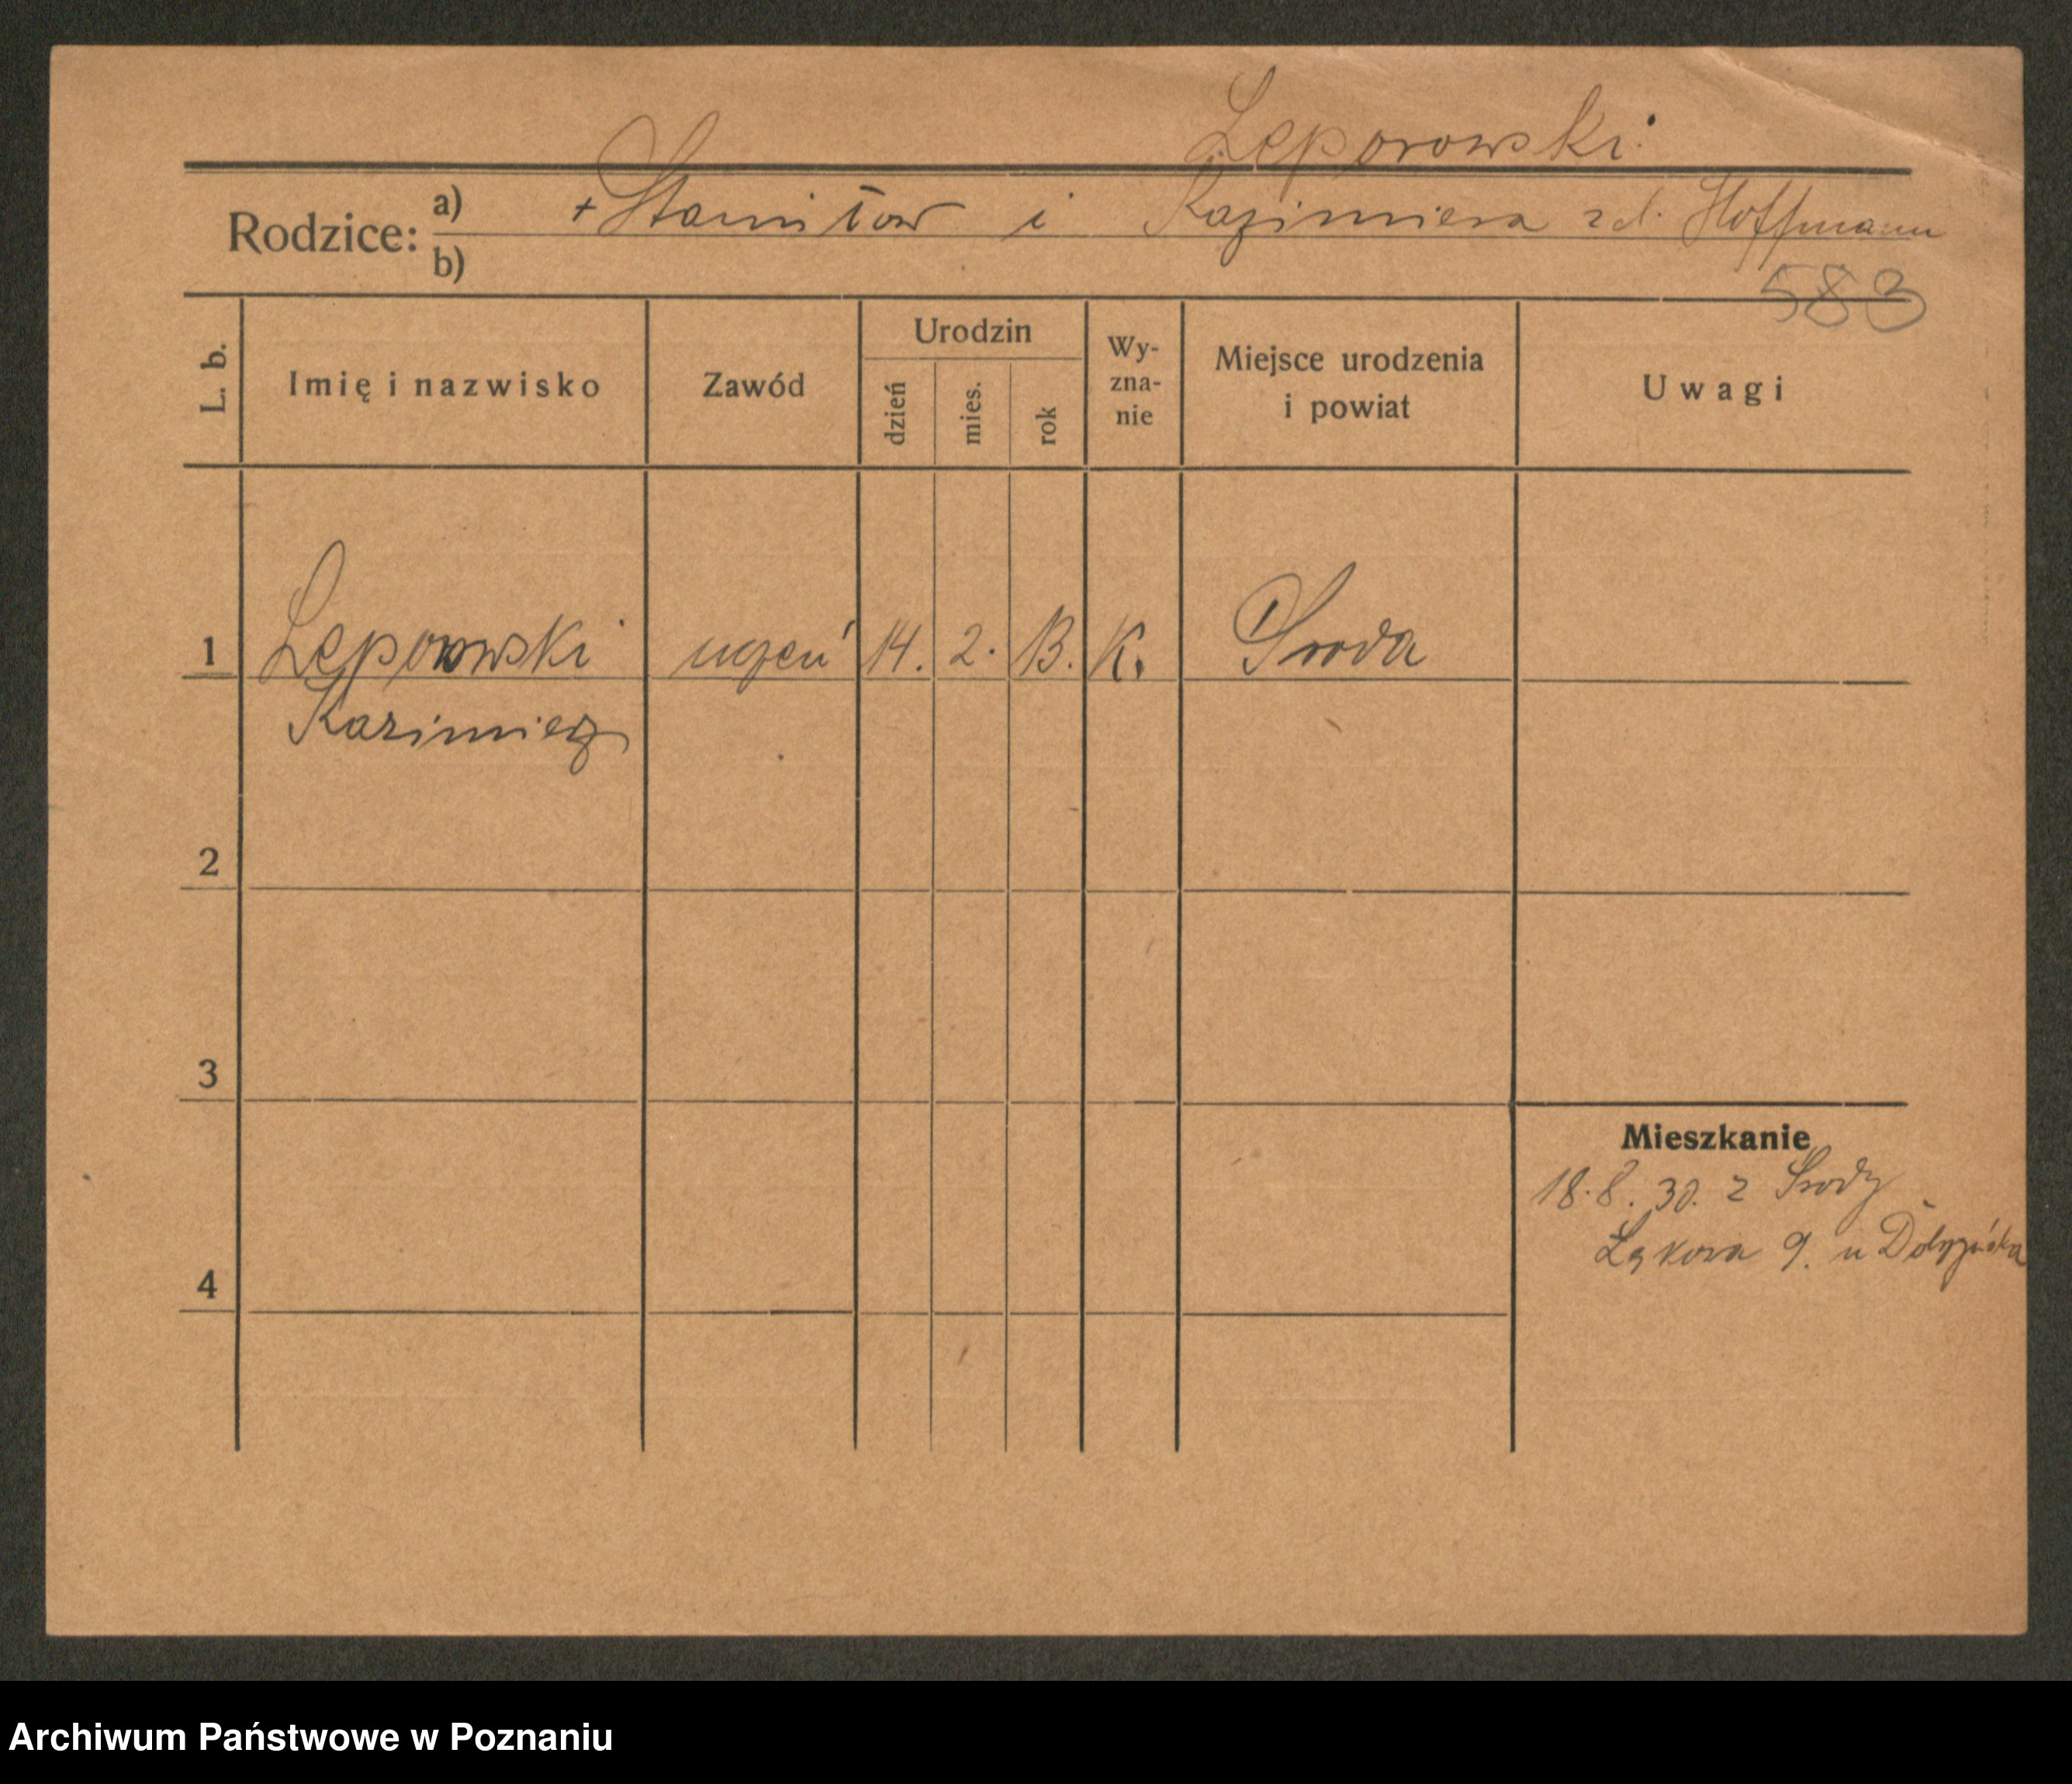 Leporowski
Rodzice: a) + Stanisław i Kazimiera zd. Hoffmann
b)
583
L. b. Imię i nazwisko Zawód Urodzin dzień mies. rok Wy-zna-nie Miejsce urodzenia i powiat Uwagi
1 Leporowski uczeń 14. 2. 13. K. Środa
Kazimierz
2
3
Mieszkanie
18.8.30. z Środy
Łąkowa 9. u
4
Archiwum Państwowe w Poznaniu